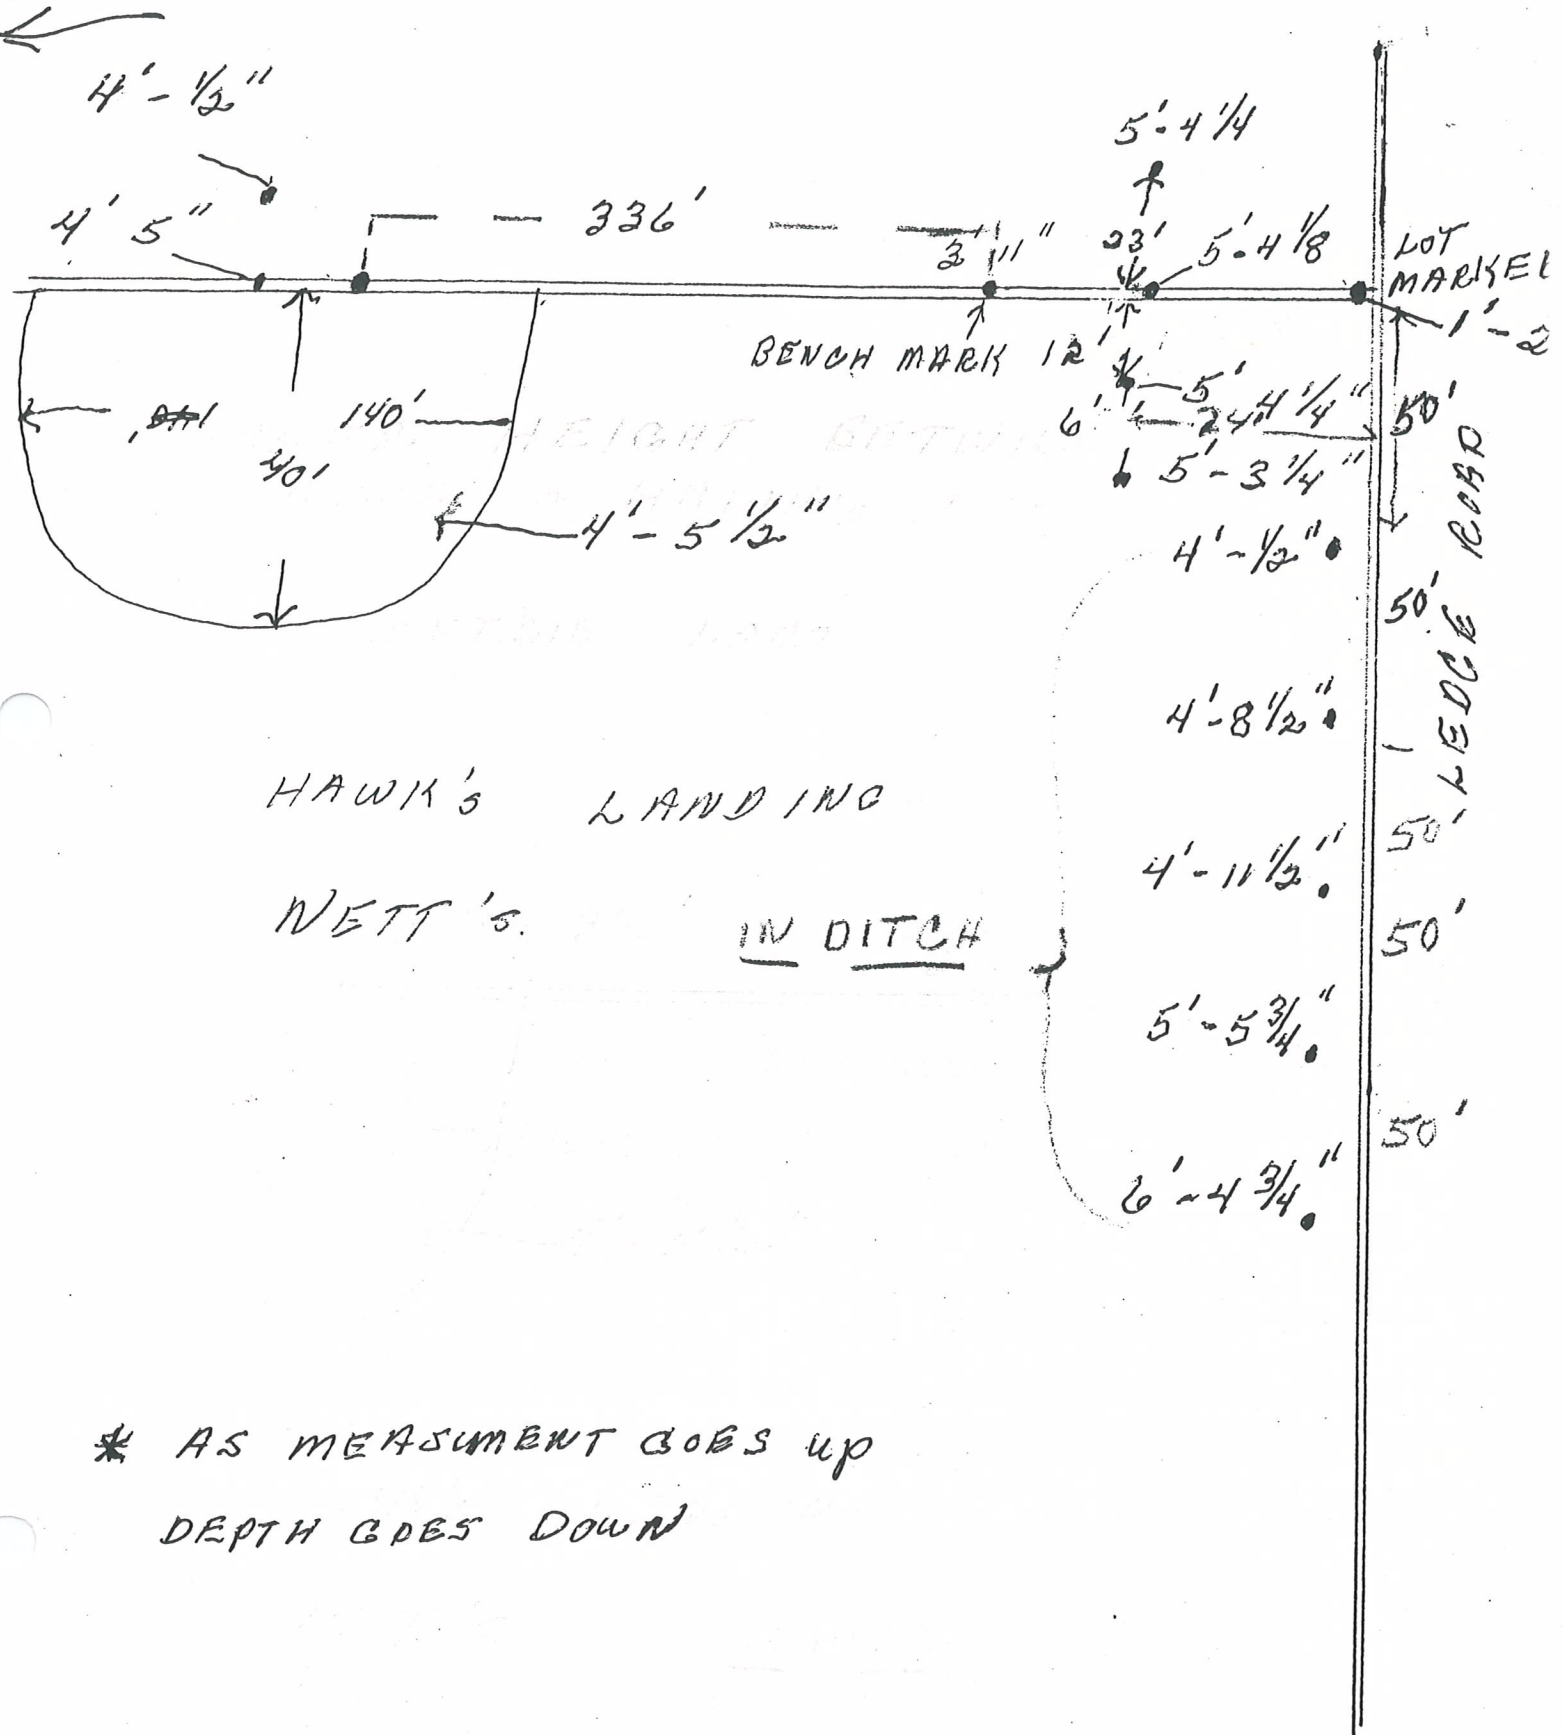 4'-½"
5'-4¼
4' 5"
336'
3' 11"
23'
5'-4⅛
LOT
MARKE
1'-2
BENCH MARK
12'
5'
4¼"
50'
140'
6'
24'
40'
5'-3¼"
4'-5½"
4'-½"
50'
LEDGE ROAD
4'-8½"
HAWK's LANDING
50'
4'-11½"
NETT's.
IN DITCH
50'
5'-5¾"
50'
6'-4¾"
* AS MEASUMENT GOES up
DEPTH GOES DOWN